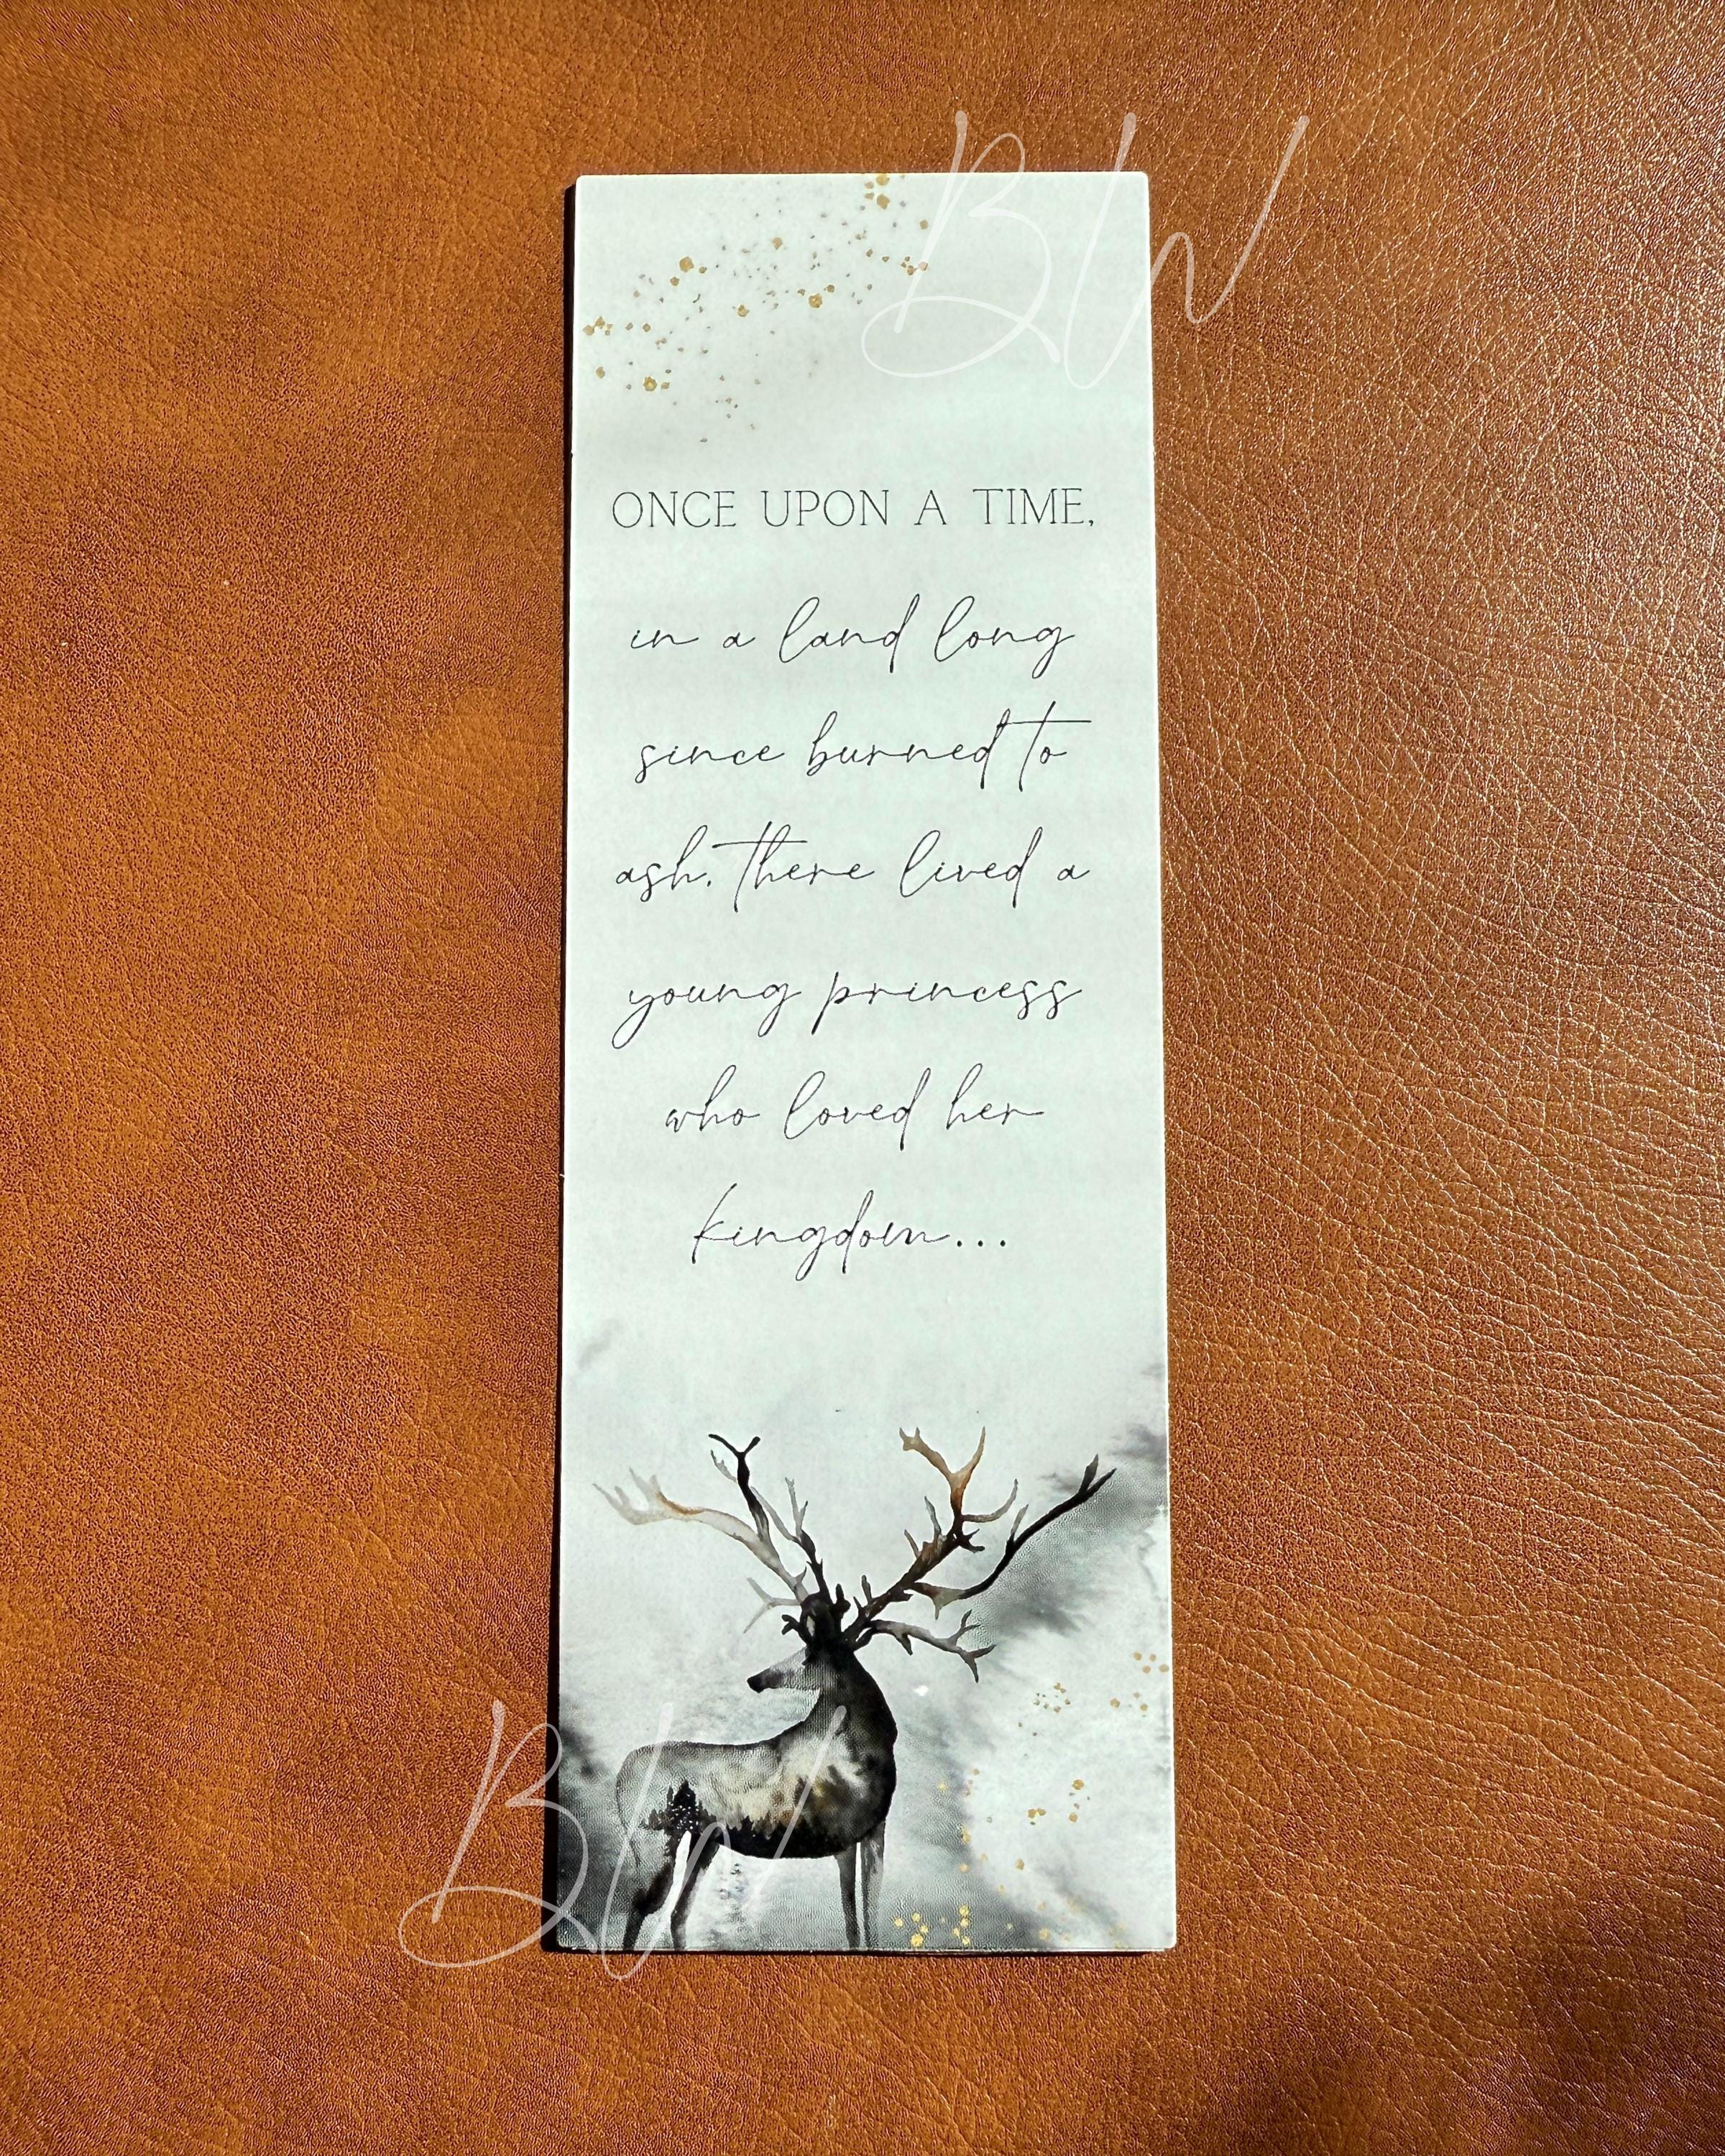 BW
ONCE UPON A TIME,
in a land long
since burned to
ash, there lived a
young princess
who loved her
kingdom...
BW